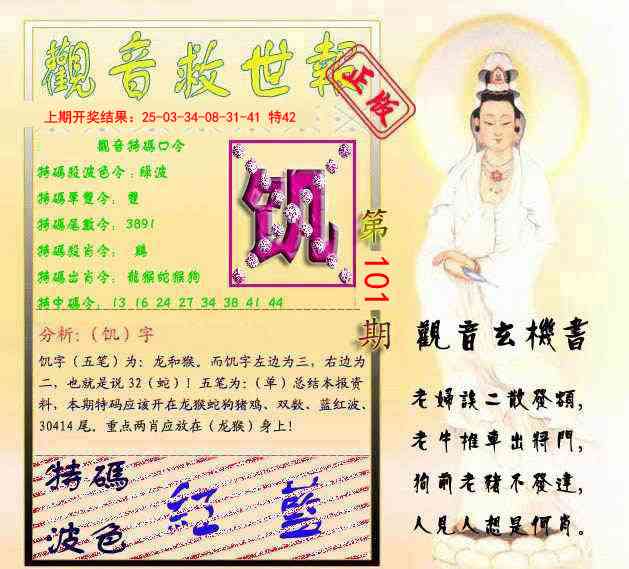 觀音救世報
正版
上期开奖结果：25-03-34-08-31-41 特42
觀音特碼口令
特碼殺波色令：綠波
特碼單雙令：雙
特碼尾數令：3891
特碼殺肖令：鷄
特碼出肖令：龍猴蛇猴狗
特中碼令：13 16 24 27 34 38 41 44
饥
第101期
分析:（饥）字
饥字（五笔）为：龙和猴。而饥字左边为三，右边为
二，也就是说 32（蛇）！五笔为：（单）总结本报资
料，本期特码应该开在龙猴蛇狗猪鸡、双数、蓝红波、
30414 尾。重点两肖应放在（龙猴）身上！
特碼
波色
紅 藍
觀音玄機書
老婦談二散發煩，
老牛推車出將門，
狗前老豬不發達，
人見人想是何肖。